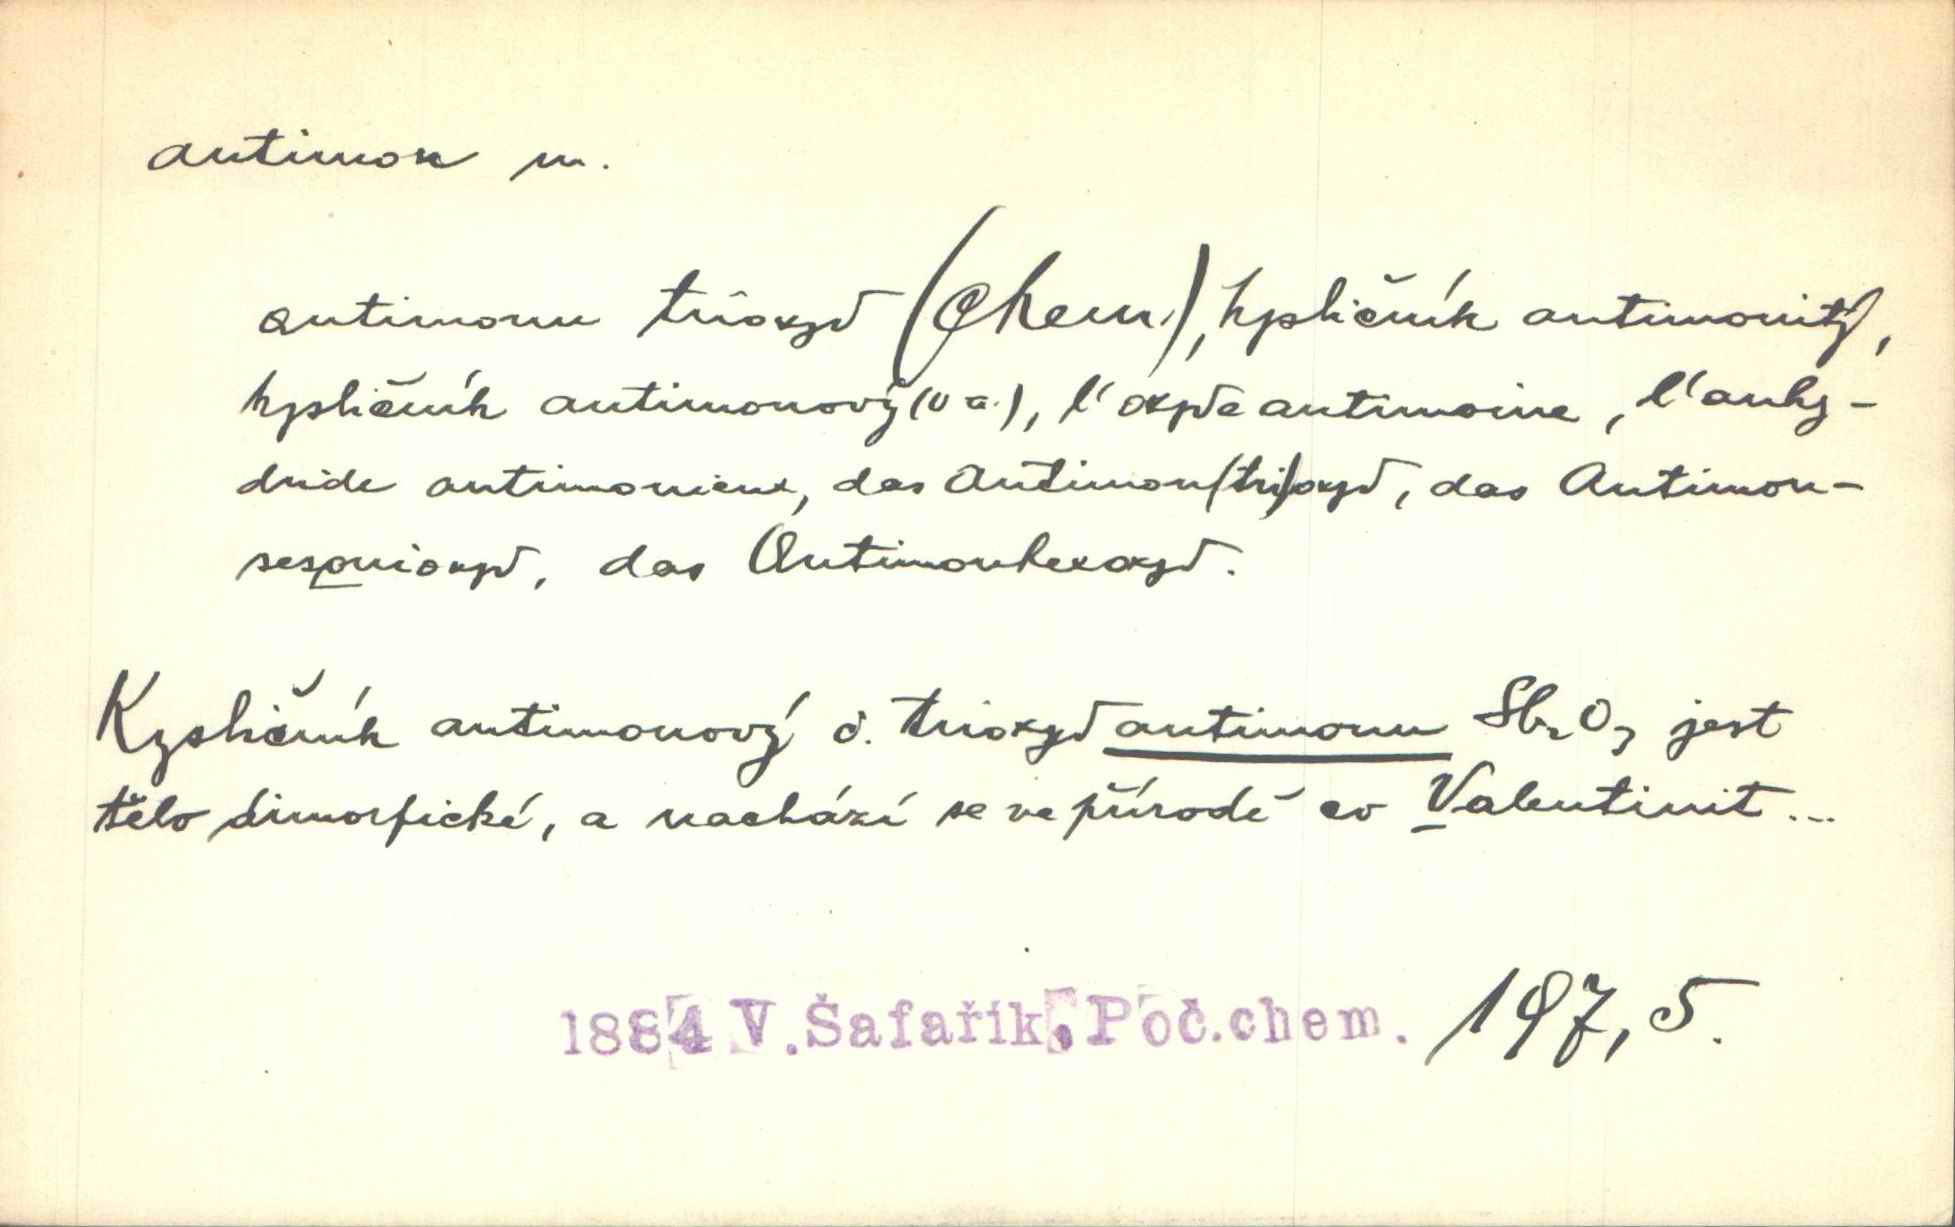 antimon m.
antimonu trioxyd (Chem.), kysličník antimonitý,
kysličník antimonový (v a.), l'oxyde antimoine, l'anhy-
dride antimonieux, das Antimon(tri)oxyd, das Antimon-
sesquioxyd, das Antimonhexoxyd.
Kysličník antimonový č. trioxyd antimonu Sb₂O₃ jest
tělo dimorfické, a nachází se ve přírodě co Valentinit...
1884 V. Šafařík. Poč. chem. 197,5.